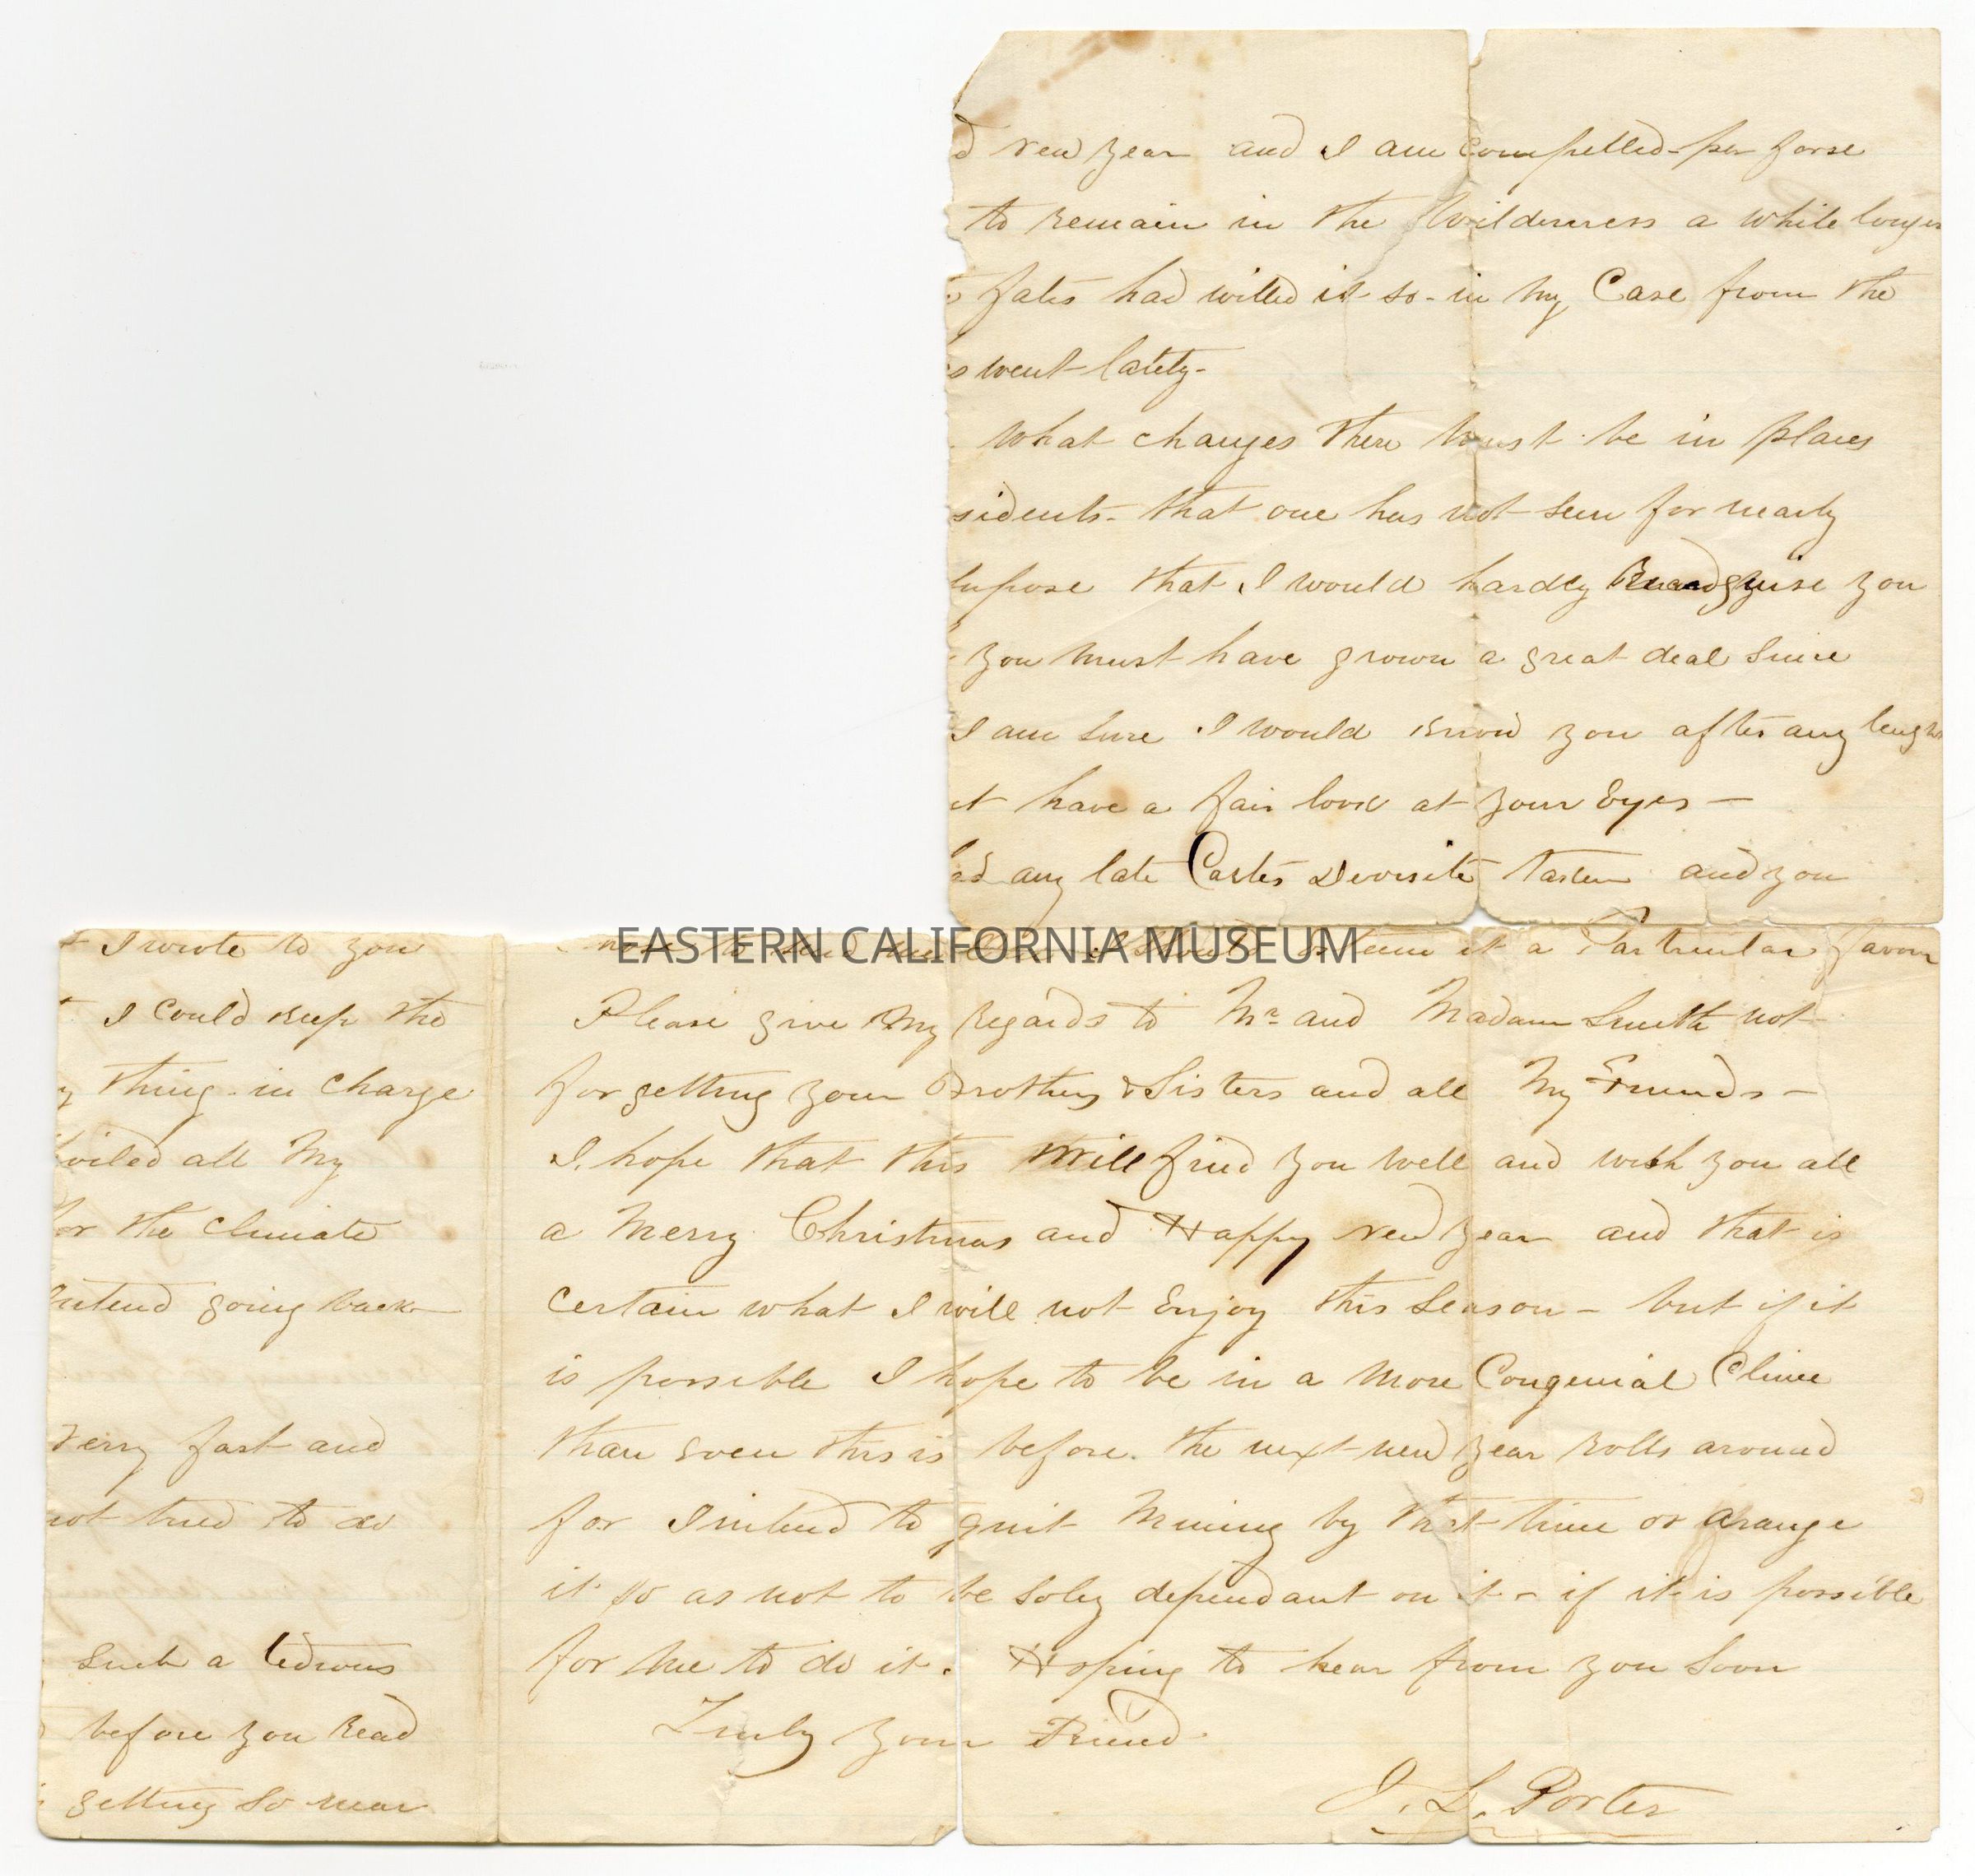 I wrote to you
I could keep the
thing in charge
oiled all My
for the climate
intend going back
very fast and
not tried to do
Such a tedious
before you Read
getting so near
d new year and I am compelled per forse
to Remain in the Wilderness a while longer
fates had willed it so in My Case from the
s went lately-
What changes there must be in places
sidents- that one has not seen for nearly
upose that I would hardly you
you must have grown a great deal Since
I am Sure I would Know you after any lenght
t have a fair look at your Eyes —
ad any late Cartes Devisite taken and you
it a Particular favour
Please give My Regards to Mr and Madam Smith not
forgetting your Brothers & Sisters and all My Friends —
I hope that this Will find you Well and wish you all
a Merry Christmas and Happy new year and that is
Certain what I will not Enjoy this Season — but if it
is possible I hope to be in a More Congenial Clime
than even this is before. the next new year Rolls around
for I intend to quit Mining by that time or Arange
it so as not to be Soley dependant on it - if it is possible
for Me to do it. Hoping to hear from you Soon
Truly your Friend
J. L. Porter
EASTERN CALIFORNIA MUSEUM